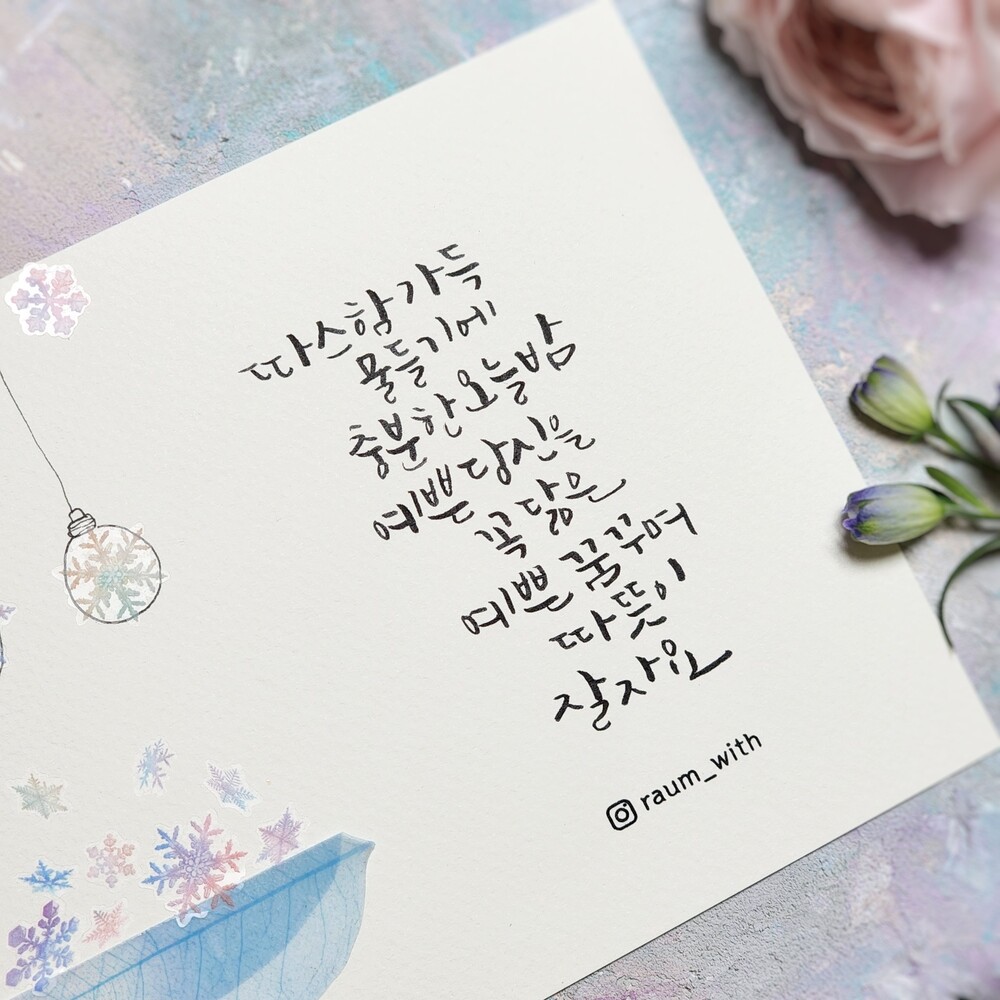 따스함 가득
물들기에
충분한 오늘밤
예쁜 당신을
꼭 닮은
예쁜 꿈꾸며
따뜻이
잘자요
raum_with